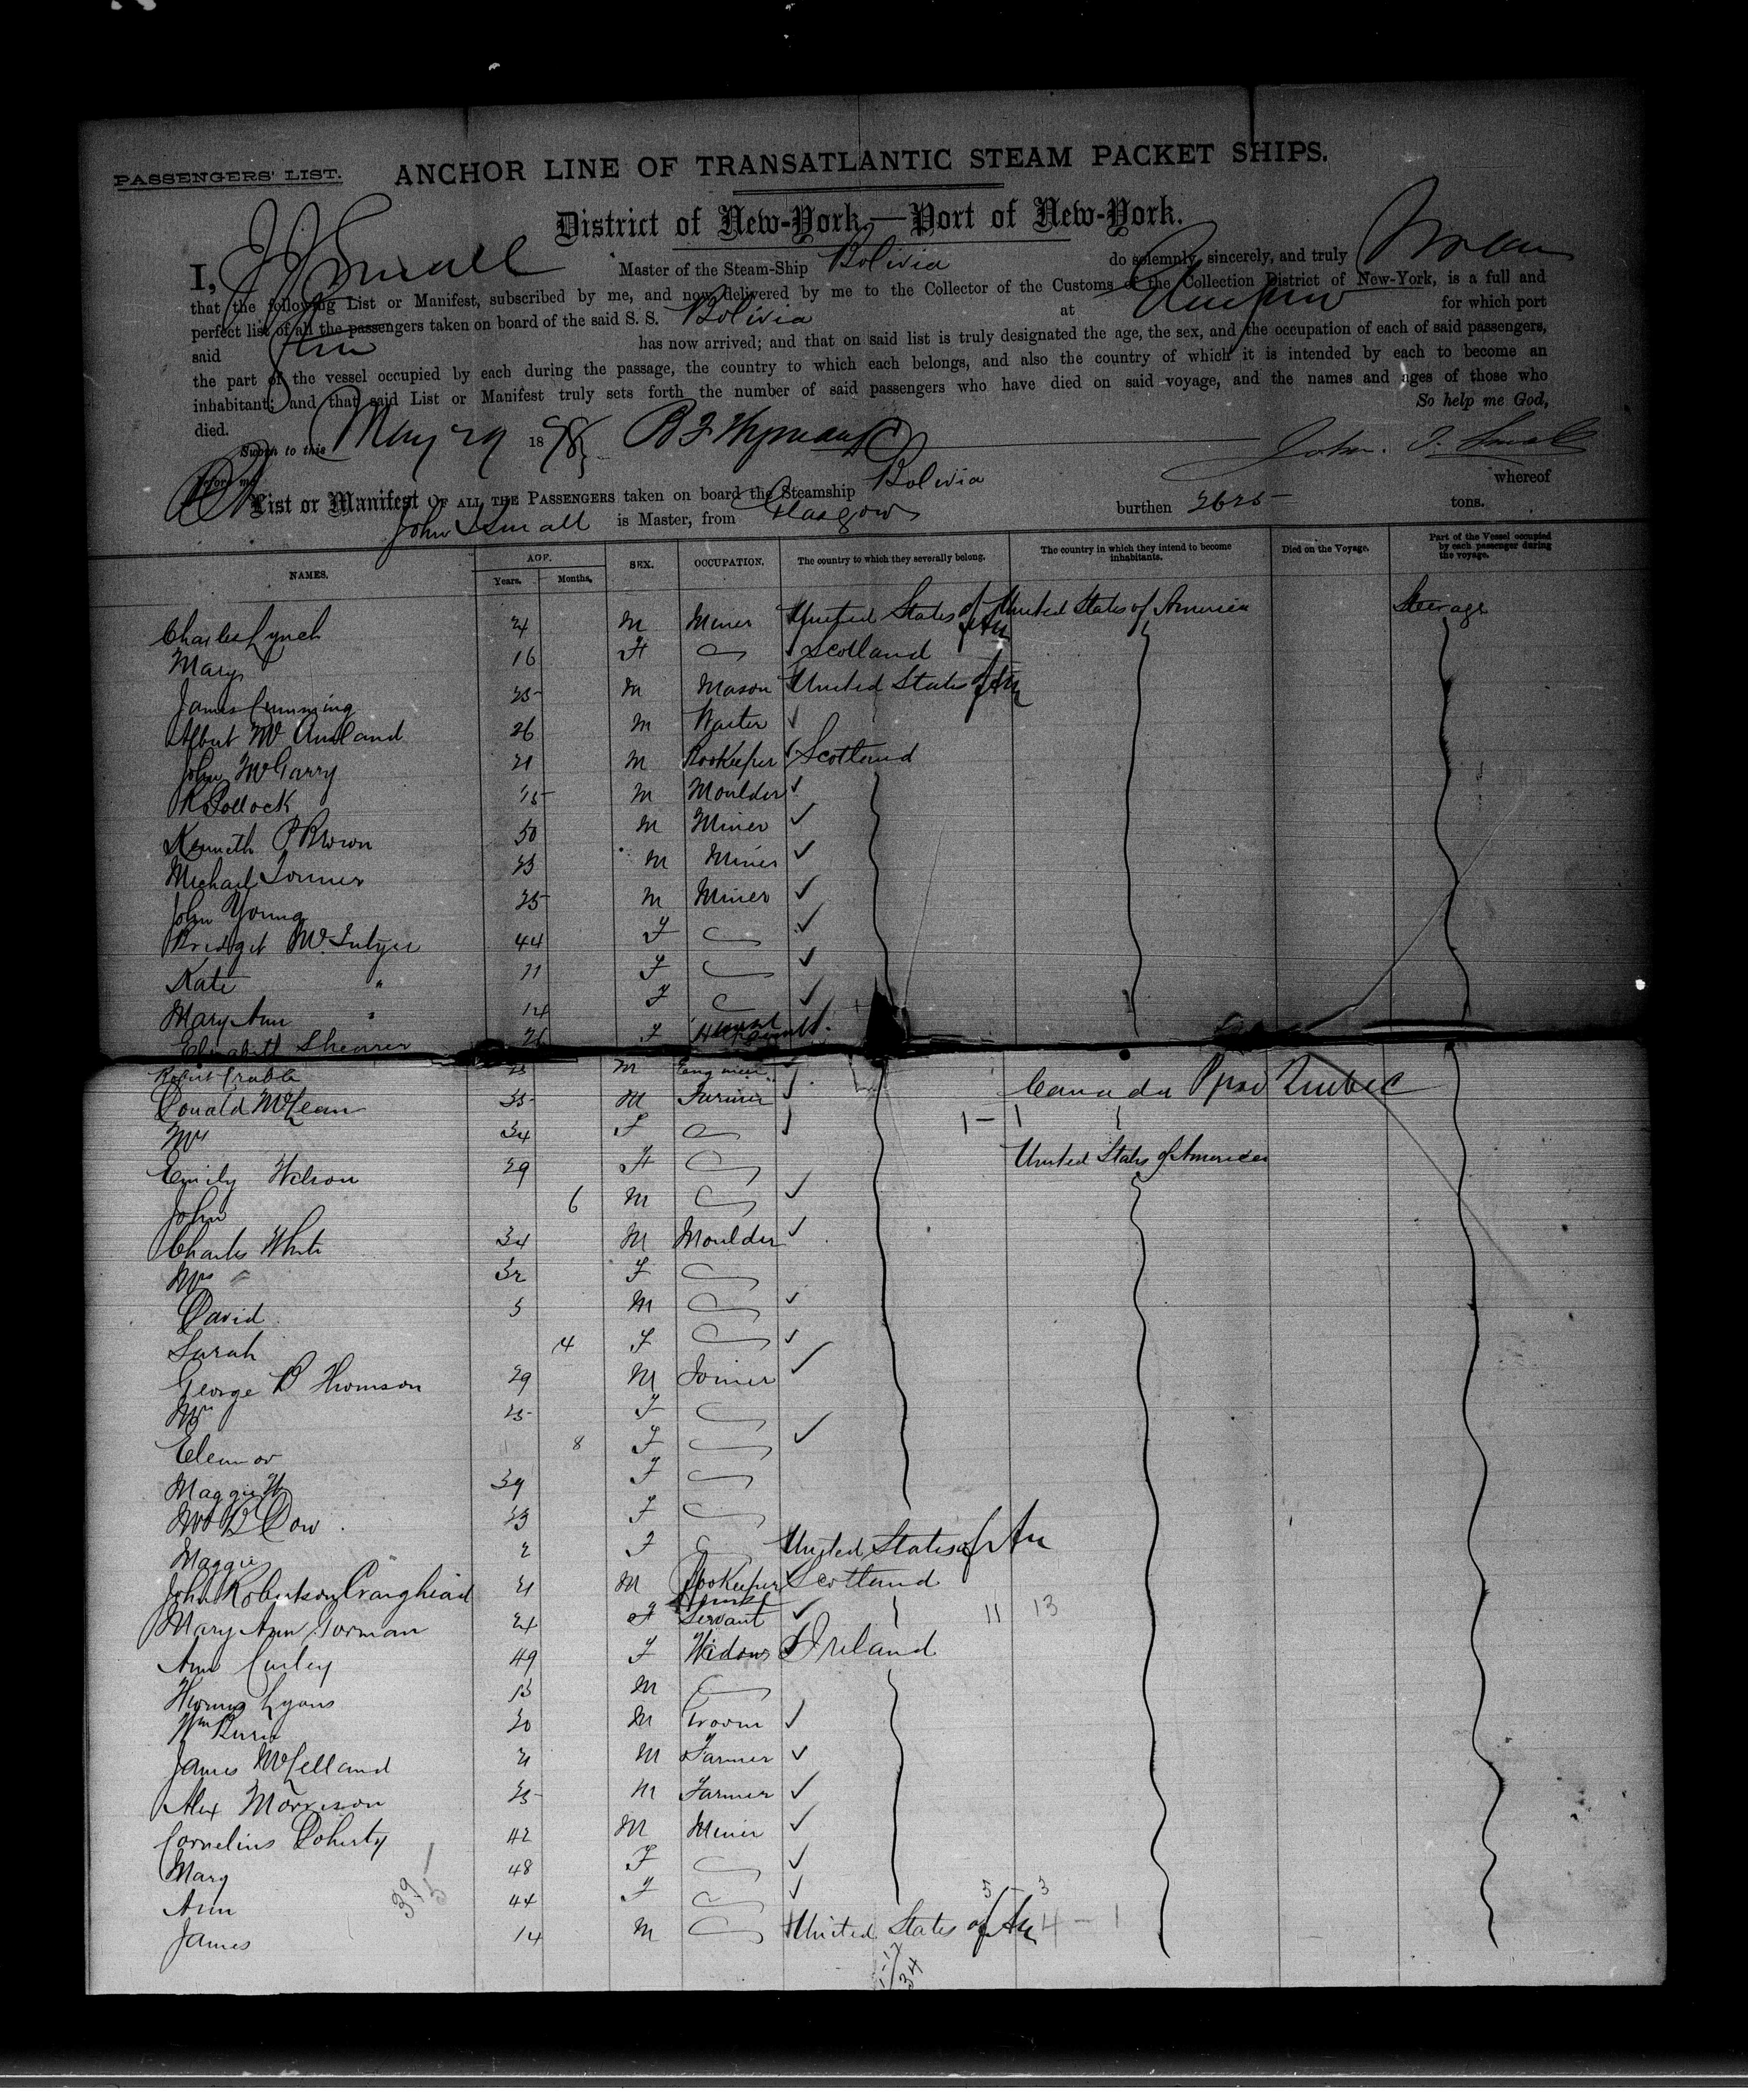 PASSENGERS' LIST. ANCHOR LINE OF TRANSATLANTIC STEAM PACKET SHIPS.
District of New-York.—Port of New-York.
I, J J Small Master of the Steam-Ship Bolivia do solemnly, sincerely, and truly
that the following List or Manifest, subscribed by me, and now delivered by me to the Collector of the Customs of the Collection District of New-York, is a full and
perfect list of all the passengers taken on board of the said S. S. Bolivia at for which port
said has now arrived; and that on said list is truly designated the age, the sex, and the occupation of each of said passengers,
the part of the vessel occupied by each during the passage, the country to which each belongs, and also the country of which it is intended by each to become an
inhabitant; and that said List or Manifest truly sets forth the number of said passengers who have died on said voyage, and the names and ages of those who
died. So help me God,
Sworn to this May 29 18 John. J. Small
before me
List or Manifest OF ALL THE PASSENGERS taken on board the Steamship Bolivia whereof
John J Small is Master, from Glasgow burthen 2625 tons.
NAMES. AGE. Years. Months. SEX. OCCUPATION. The country to which they severally belong. The country in which they intend to become inhabitants. Died on the Voyage. Part of the Vessel occupied by each passenger during the voyage.
Charles Lynch 24 M Miner United States of Am United States of America Steerage
Mary 16 F Scotland
James Cumming 25 M Mason United States of Am
Albert McAusland 26 M Waiter
John McGarry 21 M Bookeeper Scotland
R Pollock M Moulder
Kenneth P Brown 50 M Miner
Michael 23 M Miner
John Young 25 M Miner
Bridget McIntyre 44 F
Kate " 11 F
Mary Ann " 14 F
Elizabeth Shearer 21 F
Robert 23 M Engineer
Donald McLean 35 M Farmer Canada Prov Quebec
Mrs 34 F 1 - 1
Emily Wilson 29 F United States of America
John 6 M
Charles White 34 M Moulder
Mrs 32 F
David 3 M
Sarah 4 F
George B Thomson 29 M Joiner
Mrs 25 F
Eleanor 8 F
Maggie 39 F
Mrs B Dow 23 F
Maggie 2 F United States of Am
John Robertson Craighead 21 M Bookeeper Scotland
Mary Ann Gorman 24 F House Servant 11 13
Ann Curley 49 F Widow Ireland
Thomas Lyons 13 M
Wm Burn 20 M Groom
James McLelland 21 M Farmer
Alex Morrison 25 M Farmer
Cornelius Doherty 42 M Miner
Mary 48 F
Ann 44 F 5 - 3
James 14 M United States of Am 4 - 1
34